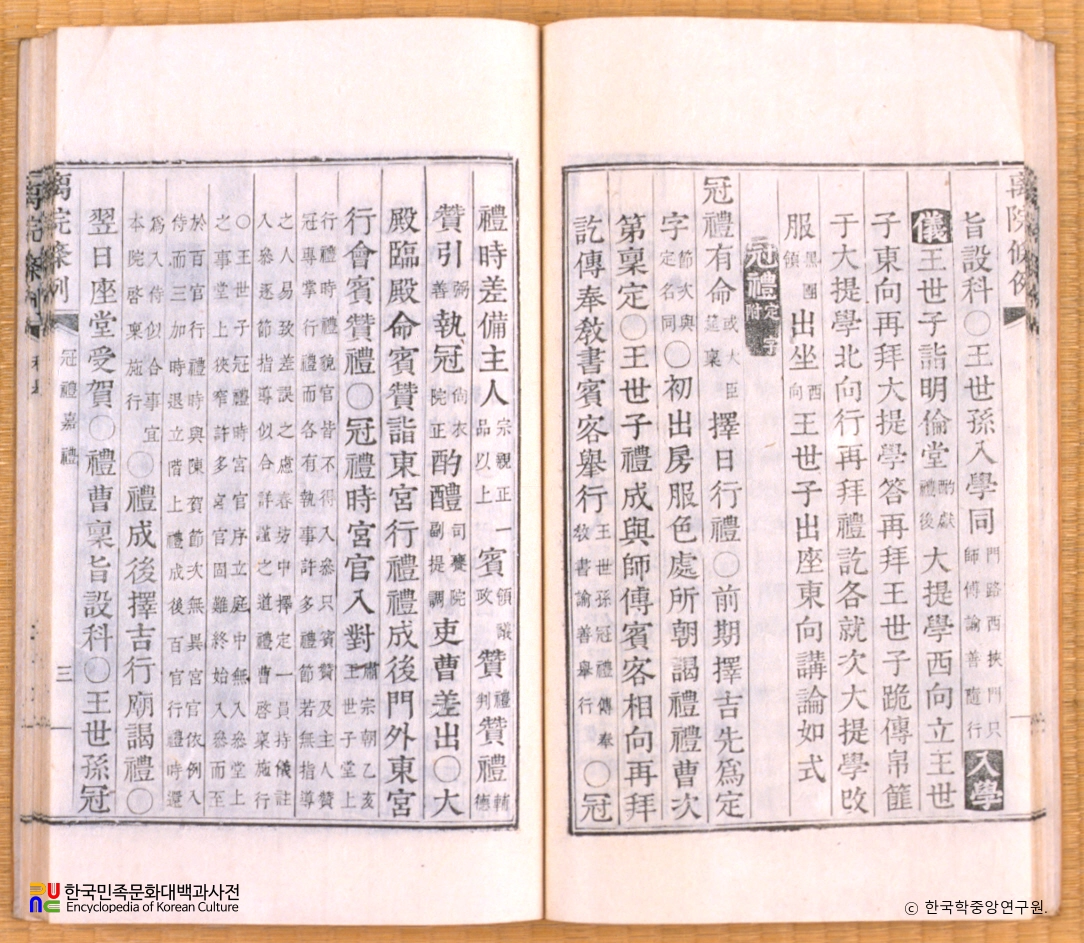 旨設科○王世孫入學同門路西挾門只師傅諭善隨行入學
儀王世子詣明倫堂酌獻禮後大提學西向立王世
子東向再拜大提學答再拜王世子跪傳帛篚
于大提學北向行再拜禮訖各就次大提學改
服黑團領出坐西向王世子出座東向講論如式
冠禮定字附
冠禮有命或大臣筵稟擇日行禮○前期擇吉先爲定
字節次與定名同○初出房服色處所朝謁禮禮曹次
第稟定○王世子禮成與師傅賓客相向再拜
訖傳奉敎書賓客舉行王世孫冠禮傳奉敎書諭善舉行○冠
禮時差備主人宗親正一品以上賓領議政贊禮判贊禮輔德
贊引弼善執冠尙衣院正酌醴司饔院副提調吏曹差出○大
殿臨殿命賓贊詣東宮行禮禮成後門外東宮
行會賓贊禮○冠禮時宮官入對肅宗朝乙亥王世子堂上
行禮時貌官皆不得入參只賓贊及主人贊
冠專掌行禮而各有執事許多禮節若無指導
之人易致差誤之慮春坊中擇定一員持儀註
入參逐節指導似合詳謹之道禮曹啓稟施行
○王世子冠禮時宮官序立庭中無入參堂上
之事堂上狹窄許多宮官固難終始入參而至
於百官行禮時與陳賀節次無異宮官依例入
侍而三加時退立階上禮成後百官行禮時還
爲入侍似合事宜
本院啓稟施行○禮成後擇吉行廟謁禮○
翌日座堂受賀○禮曹稟旨設科○王世孫冠
離院條例
冠禮 嘉禮
三
한국민족문화대백과사전
Encyclopedia of Korean Culture
ⓒ 한국학중앙연구원.